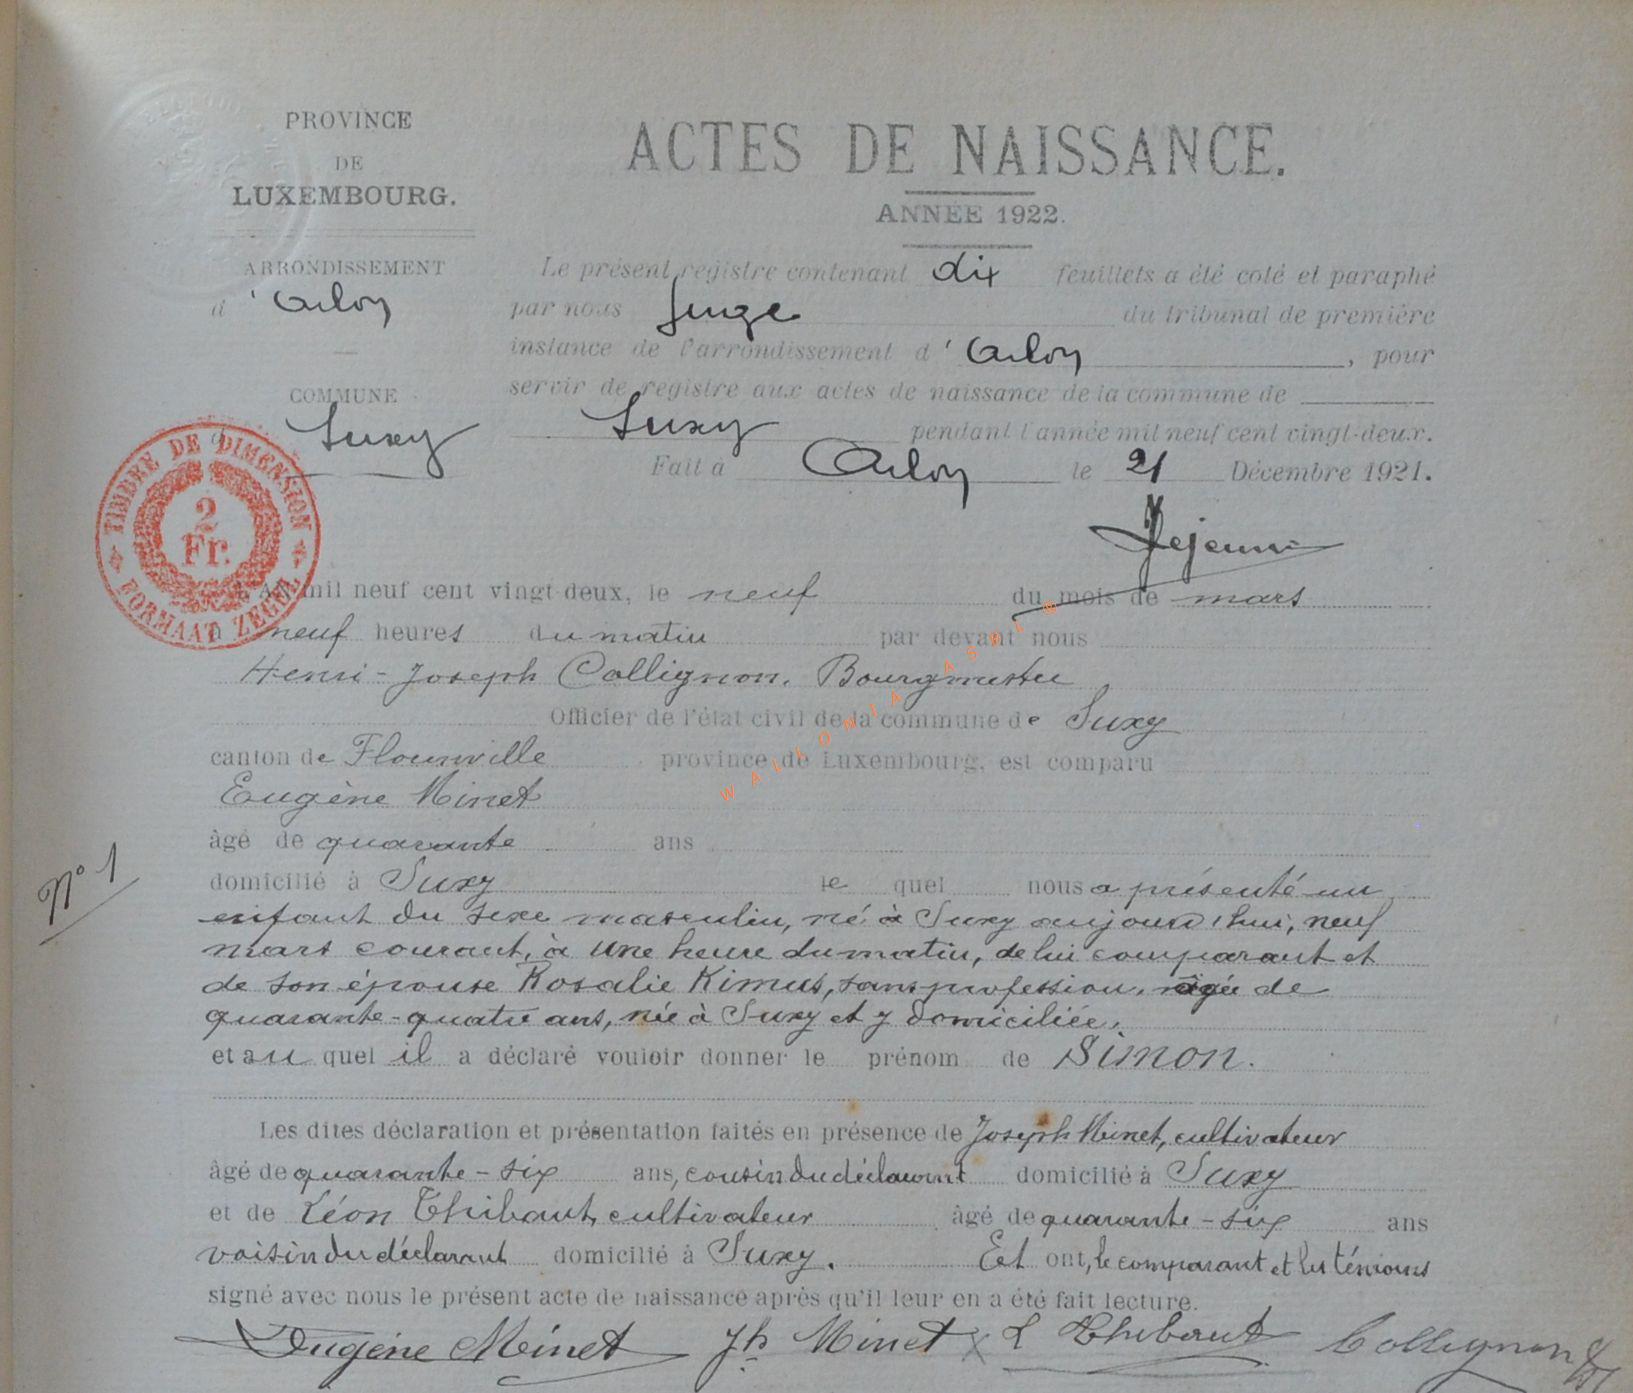 PROVINCE
DE
LUXEMBOURG.
ACTES DE NAISSANCE.
ANNÉE 1922.
ARRONDISSEMENT
d'Arlon
COMMUNE
d Suxy
Le présent registre contenant dix feuillets a été coté et paraphé
par nous Juge du tribunal de première
instance de l'arrondissement d'Arlon, pour
servir de registre aux actes de naissance de la commune de
Suxy pendant l'année mil neuf cent vingt-deux.
Fait à Arlon le 21 Décembre 1921.
TIMBRE DE DIMENSION
2
Fr.
FORMAAT ZEGEL
L'An mil neuf cent vingt-deux, le neuf du mois de mars
à neuf heures du matin par devant nous
Henri-Joseph Collignon, Bourgmestre
Officier de l'état civil de la commune de Suxy
canton de Florenville province de Luxembourg, est comparu
Eugène Minet
âgé de quarante ans
domicilié à Suxy le quel nous a présenté un
enfant du sexe masculin, né à Suxy aujourd'hui, neuf
mars courant, à une heure du matin, de lui comparant et
de son épouse Rosalie Kimus, sans profession, âgée de
quarante-quatre ans, née à Suxy et y domiciliée,
et au quel il a déclaré vouloir donner le prénom de Simon.
Les dites déclaration et présentation faites en présence de Joseph Minet, cultivateur
âgé de quarante-six ans, cousin du déclarant domicilié à Suxy
et de Léon Thibaut, cultivateur âgé de quarante-six ans
voisin du déclarant domicilié à Suxy. Et ont, le comparant et les témoins
signé avec nous le présent acte de naissance après qu'il leur en a été fait lecture.
Eugène Minet Jh Minet L Thibaut Collignon
N° 1
WALLONIA ASBL